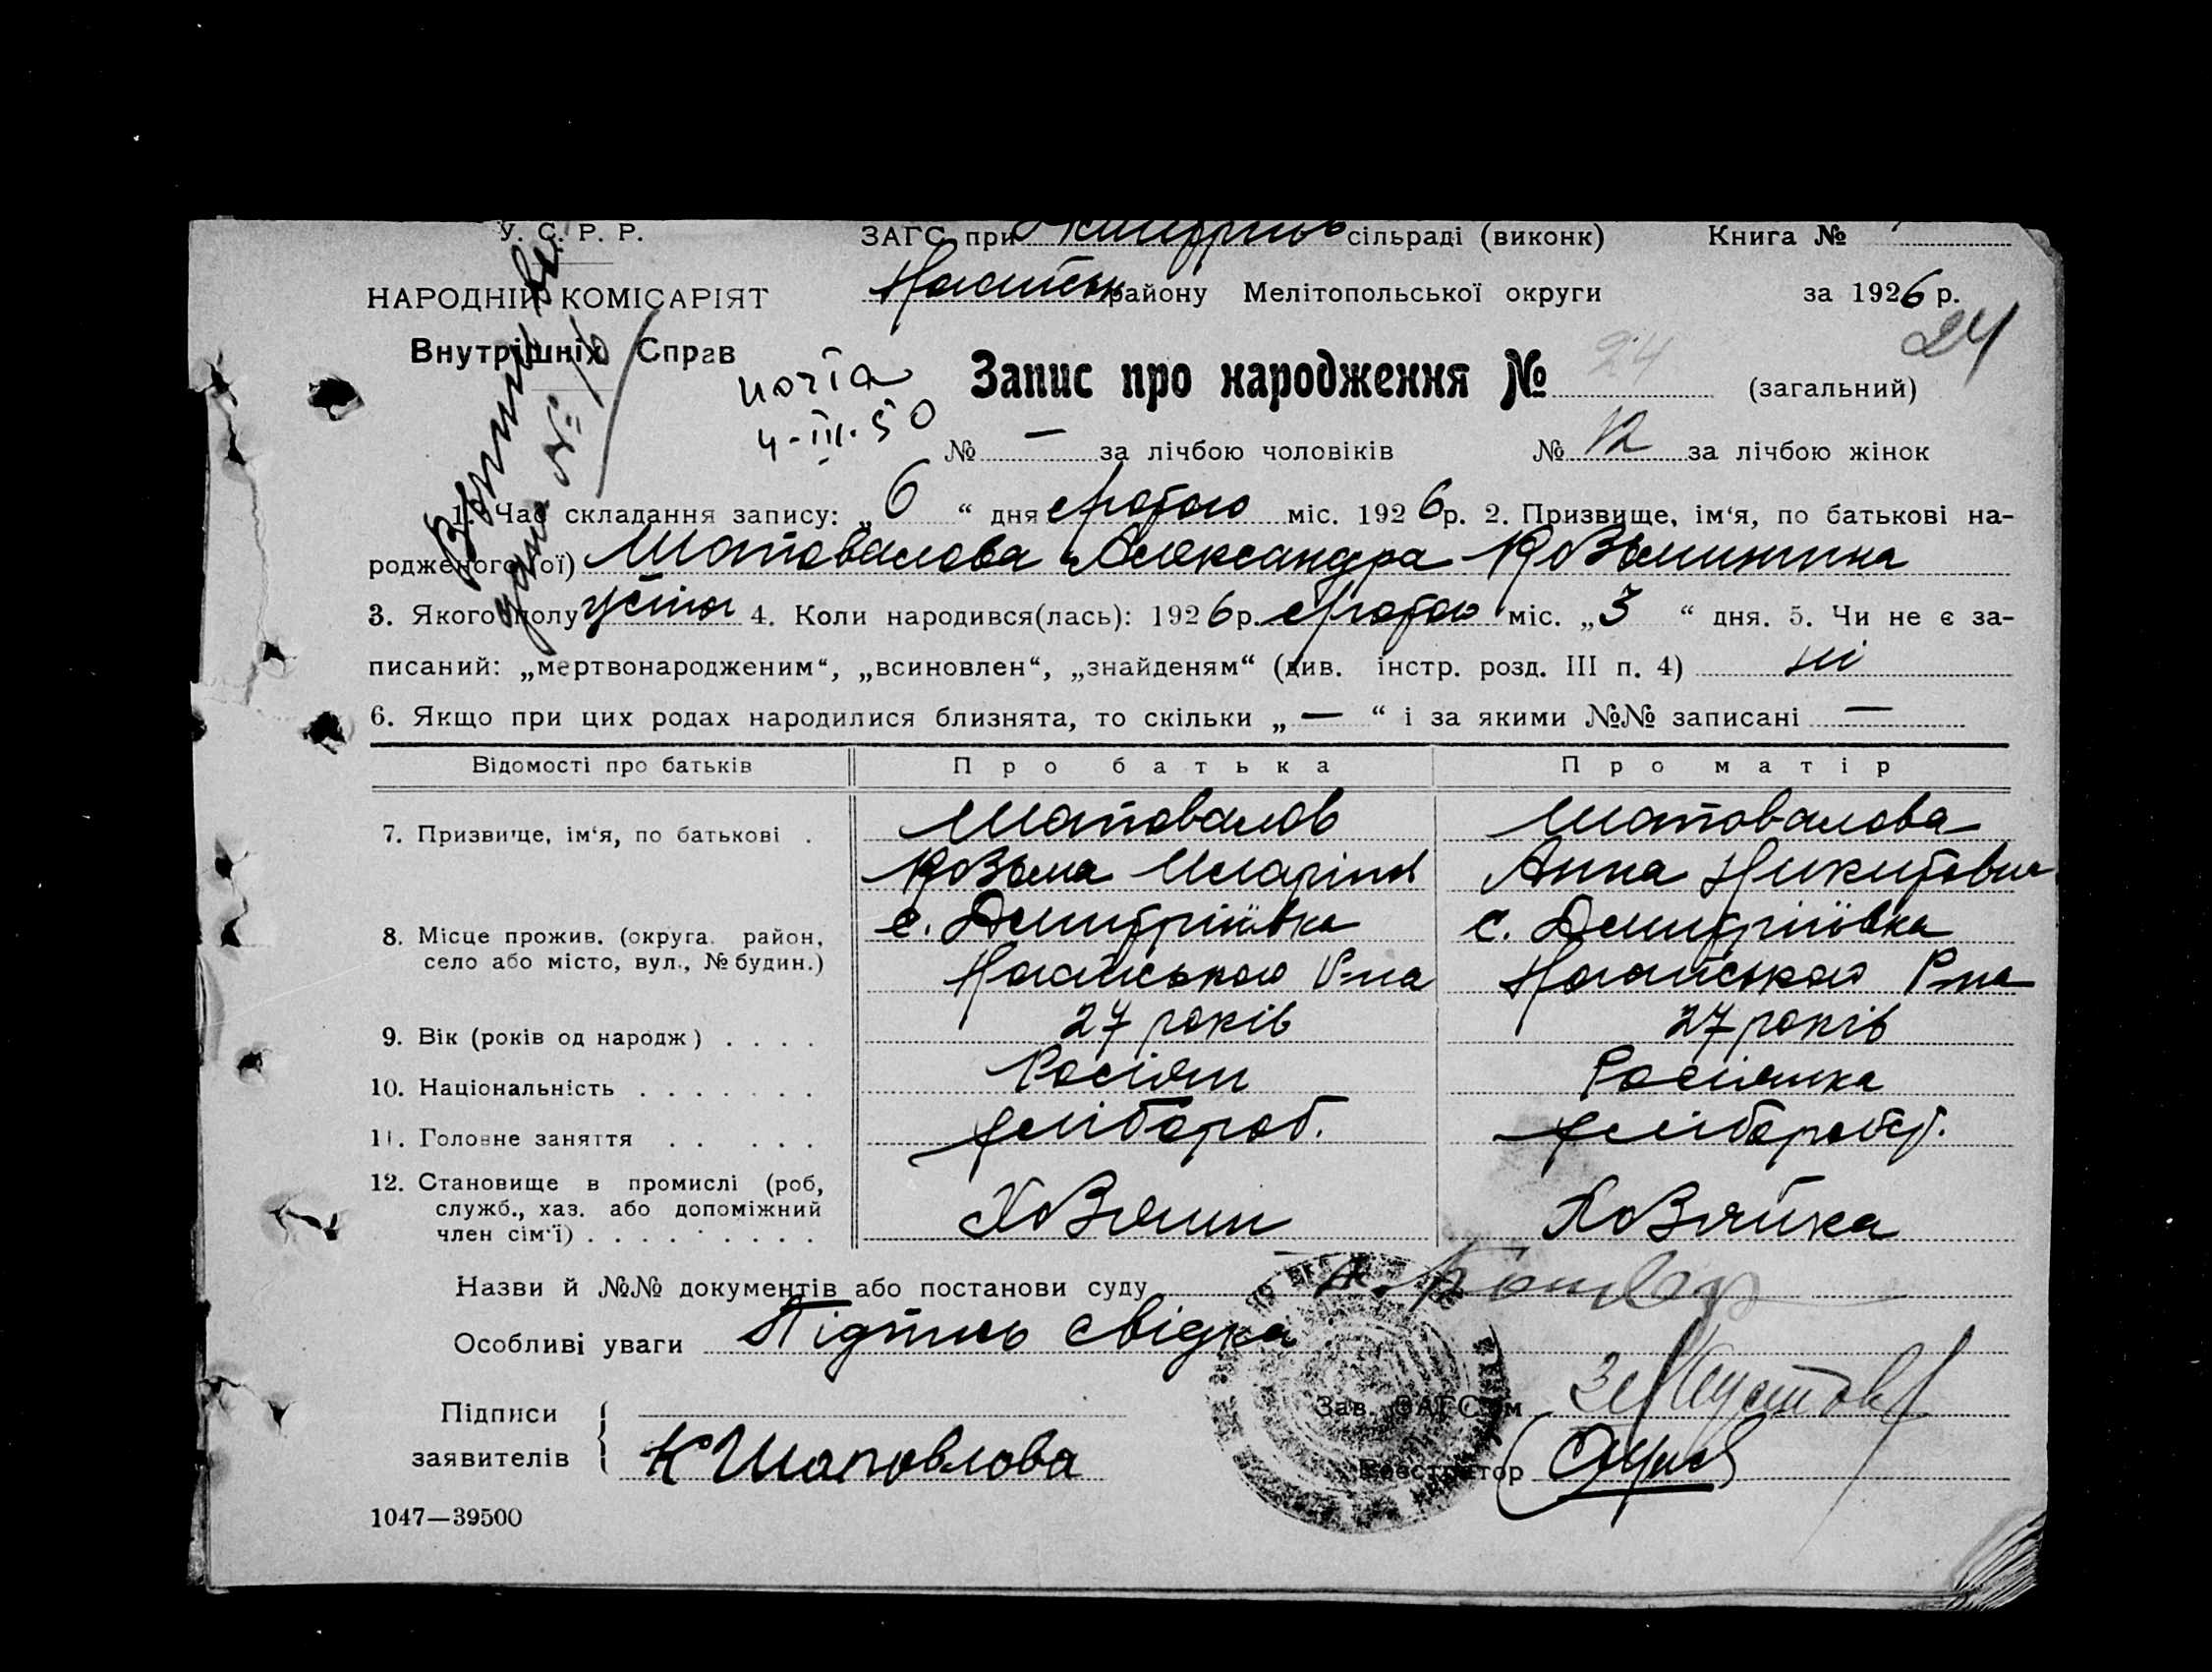 У. С. Р. Р.
ЗАГС при сільраді (виконк)
Книга №
НАРОДНІЙ КОМІСАРІЯТ
Ногайськ району Мелітопольської округи
за 1926 р.
Внутрішніх Справ
24
копія
4-III-50
Запис про народження № 24 (загальний)
№ — за лічбою чоловіків № 12 за лічбою жінок
1. Час складання запису: „6“ дня лютого міс. 1926 р. 2. Призвище, ім‘я, по батькові на-
родженого(ої) Шаповалова Александра Козьминична
3. Якого полу жіноч 4. Коли народився(лась): 1926 р. лютого міс. „3“ дня. 5. Чи не є за-
писаний: „мертвонародженим“, „всиновлен“, „знайденям“ (див. інстр. розд. III п. 4) ні
6. Якщо при цих родах народилися близнята, то скільки „—“ і за якими №№ записані —
Відомості про батьків
Про батька
Про матір
7. Призвище, ім‘я, по батькові .
Шаповалов
Козьма
Шаповалова
Анна Никитовна
8. Місце прожив. (округа. район,
село або місто, вул., № будин.)
с. Дмитріївка
Ногайського Р-на
с. Дмитріївка
Ногайського Р-на
9. Вік (років од народж) . . . .
27 років
27 років
10. Національність . . . . . . .
Росіян
Росіянка
11. Головне заняття . . . . .
хлібороб.
хлібороб.
12. Становище в промислі (роб,
служб., хаз. або допоміжний
член сім‘ї) . . . . . . . . .
Хозяин
Хозяйка
Назви й №№ документів або постанови суду
Особливі уваги Підпись свідка
Підписи
заявителів
К Шаповлова
Зав. ЗАГС‘ом
Реєстратор
1047—39500